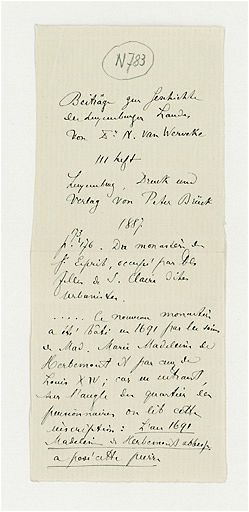 N783
Beiträge zur Geschichte
des Luxemburger Landes
von Dr N. van Werveke
III Heft
Luxemburg, Druck und
Verlag von Peter Brück
1887
p. 76. Du monastère du
St Esprit, occupé par les
filles de S. Claire dites
urbanistes.
..... Ce nouveau monastère
a été bâti en 1691 par les soins
de Mad. Marie Madeleine de
Herbemont et par ceux de
Louis XIV; car en entrant,
sur l'angle du quartier des
pensionnaires on lit cette
inscription: L'an 1691
Madelein de Herbemont abbesse
a posé cette pierre